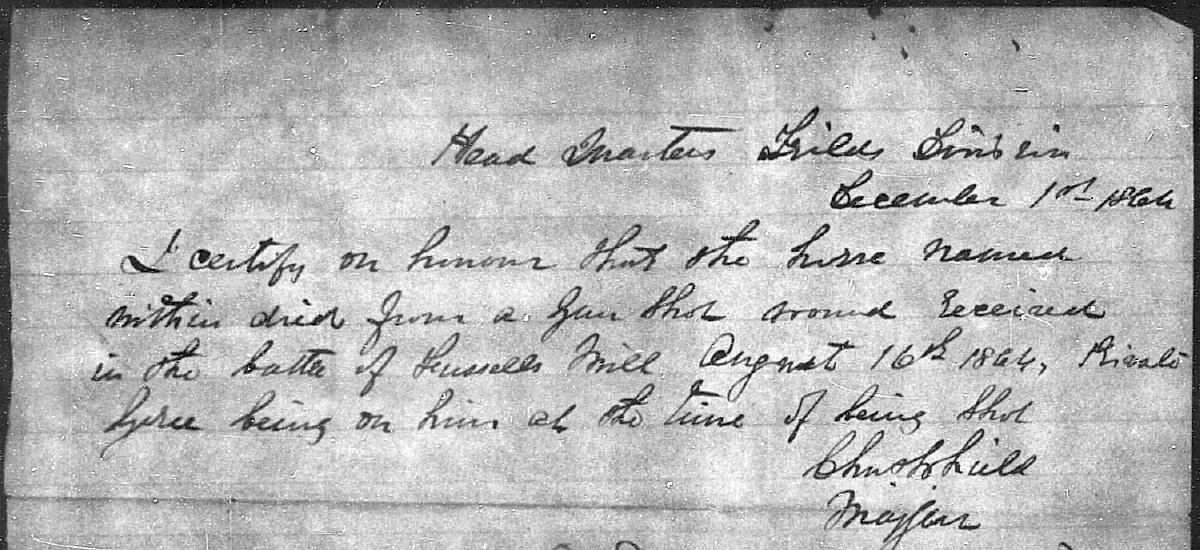 Head Quarters Fields Division
December 1st 1864
I certify on honour that the horse named
within died from a Gun Shot wound received
in the battle of Fussells Mill August 16th 1864, Private
being on him at the time of being Shot
Field
Major